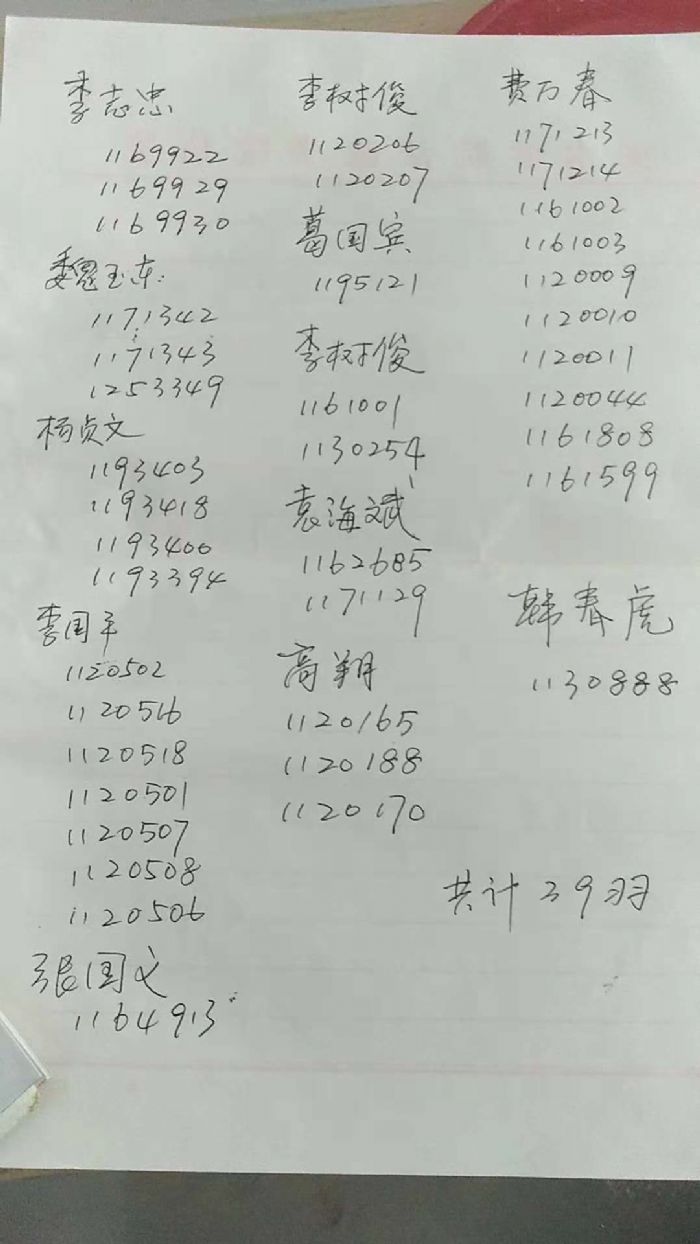 李志忠
1169922
1169929
1169930
魏玉东:
1171342
1171343
1253349
杨贞文
1193403
1193418
1193400
1193394
李国平
1120502
1120516
1120518
1120501
1120507
1120508
1120506
张国文
1164913
李树俊
1120206
1120207
葛国宾
1195121
李树俊
1161001
1130254
袁海斌
1162685
1171129
高翔
1120165
1120188
1120170
费万春
1171213
1171214
1161002
1161003
1120009
1120010
1120011
1120044
1161808
1161599
韩春虎
1130888
共计39羽